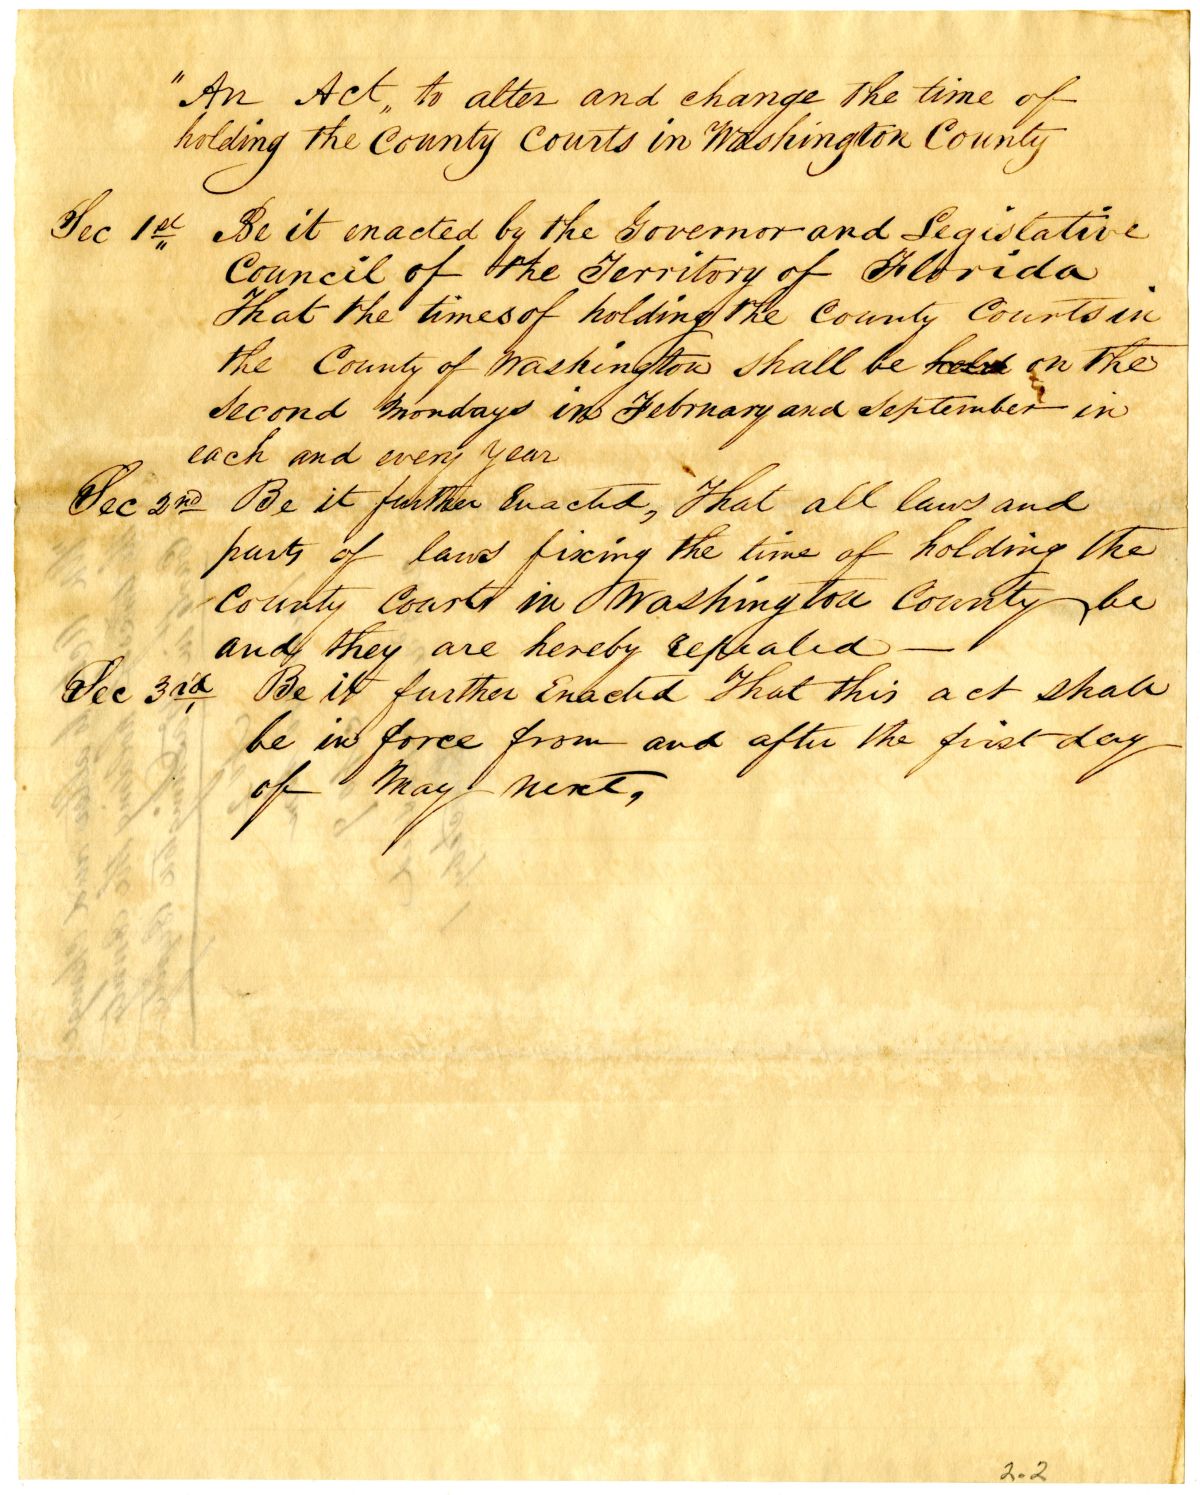 "An Act„ to alter and change the time of
holding the County Courts in Washington County
Sec 1st Be it enacted by the Governor and Legislative
Council of the Territory of Florida
That the times of holding the County Courts in
the County of Washington shall be held on the
second Mondays in February and September in
each and every year
Sec 2nd Be it further Enacted, That all laws and
parts of laws fixing the time of holding the
County Courts in Washington County be
and they are hereby repealed —
Sec 3rd Be it further Enacted That this act shall
be in force from and after the first day
of May next,
2-2